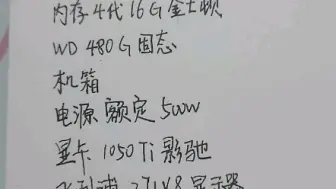 内存4代16G金士顿
WD 480G固态
机箱
电源 额定500W
显卡 1050Ti影驰
显示器